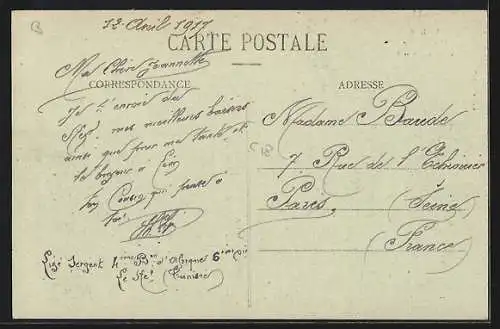 12 Avril 1917
CARTE POSTALE
Ma Chère Jeannette
CORRESPONDANCE
Je t'envoie du
Kef, mes meilleurs baisers
ainsi que pour ma tante et
le
Ton Cousin qui pense à
toi
Sergent 4ème Bon d'Afrique 6ème Cie
Le Kef (Tunisie)
ADRESSE
Madame Barède
7 Rue de l'Echiquier
Paris, (Seine)
(France)